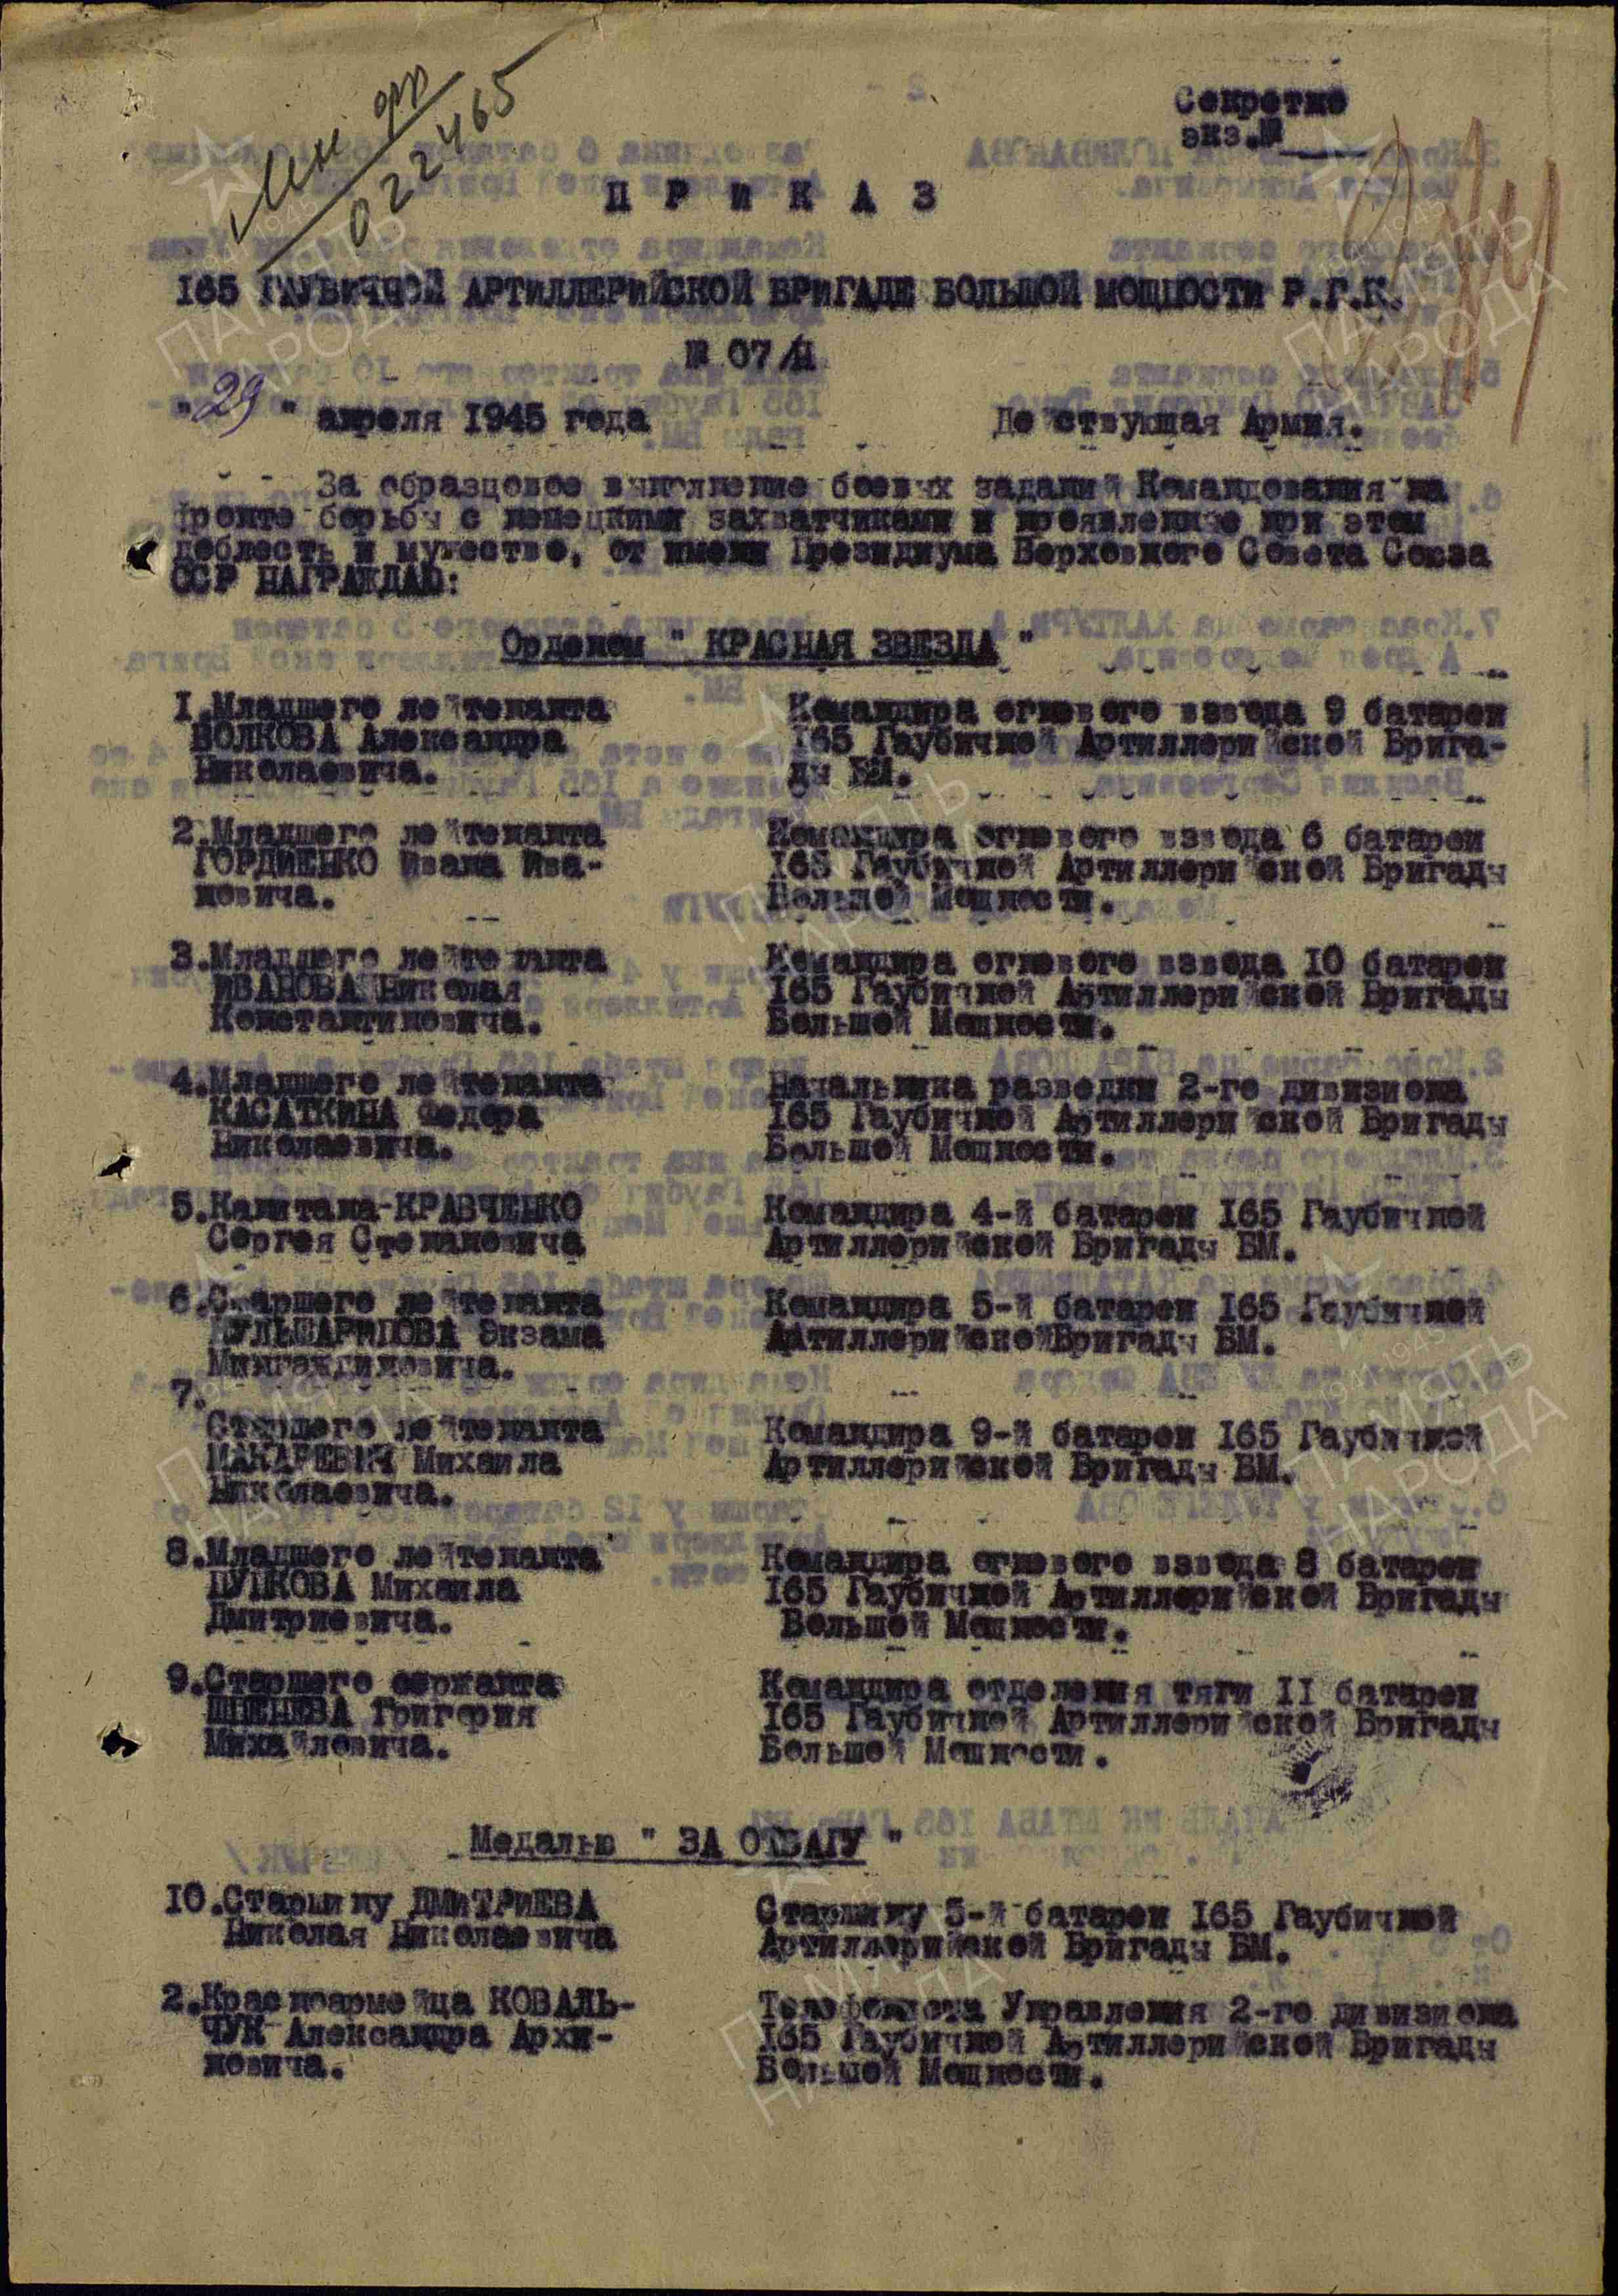 Секретно
экз.№____
022465
П Р И К А З
165 ГАУБИЧНОЙ АРТИЛЛЕРИЙСКОЙ БРИГАДЕ БОЛЬШОЙ МОЩНОСТИ Р.Г.К.
№ 07/Н
"29" апреля 1945 года Действующая Армия.
За образцовое выполнение боевых заданий Командования на
фронте борьбы с немецкими захватчиками и проявленные при этом
доблесть и мужество, от имени Президиума Верховного Совета Союза
ССР НАГРАЖДАЮ:
Орденом " КРАСНАЯ ЗВЕЗДА "
1.Младшего лейтенанта Командира огневого взвода 9 батареи
ВОЛКОВА Александра 165 Гаубичной Артиллерийской Брига-
Николаевича. ды БМ.
2.Младшего лейтенанта Командира огневого взвода 6 батареи
ГОРДИЕНКО Ивана Ива- 165 Гаубичной Артиллерийской Бригады
новича. Большой Мощности.
3.Младшего лейтенанта Командира огневого взвода 10 батареи
ИВАНОВА Николая 165 Гаубичной Артиллерийской Бригады
Константиновича. Большой Мощности.
4.Младшего лейтенанта Начальника разведки 2-го дивизиона
КАСАТКИНА Федора 165 Гаубичной Артиллерийской Бригады
Николаевича. Большой Мощности.
5.Капитана-КРАВЧЕНКО Командира 4-й батареи 165 Гаубичной
Сергея Степановича Артиллерийской Бригады БМ.
6.Старшего лейтенанта Командира 5-й батареи 165 Гаубичной
КУЛЬШАРИПОВА Экзама АртиллерийскойБригады БМ.
7.
Старшего лейтенанта Командира 9-й батареи 165 Гаубичной
МАКАРЕВИЧ Михаила Артиллерийской Бригады БМ.
Николаевича.
8.Младшего лейтенанта Командира огневого взвода 8 батареи
ПУШКОВА Михаила 165 Гаубичной Артиллерийской Бригады
Дмитриевича. Большой Мощности.
9.Старшего сержанта Командира отделения тяги 11 батареи
ШПЕНЕВА Григория 165 Гаубичной Артиллерийской Бригады
Михайловича. Большой Мощности.
Медалью " ЗА ОТВАГУ "
10.Старшину ДМИТРИЕВА Старшину 5-й батареи 165 Гаубичной
Николая Николаевича Артиллерийской Бригады БМ.
2.Красноармейца КОВАЛЬ- Телефониста Управления 2-го дивизиона
ЧУК Александра Архи- 165 Гаубичной Артиллерийской Бригады
повича. Большой Мощности.